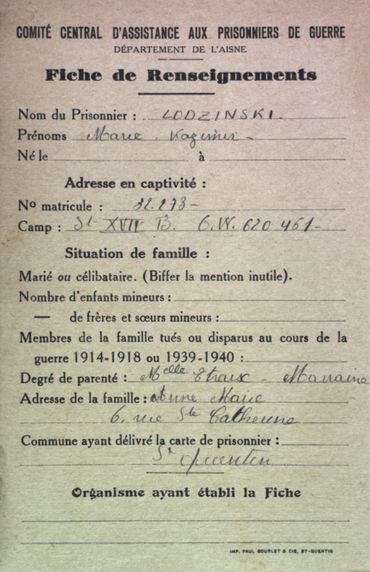 COMITÉ CENTRAL D'ASSISTANCE AUX PRISONNIERS DE GUERRE
DÉPARTEMENT DE L'AISNE
Fiche de Renseignements
Nom du Prisonnier : LODZINSKI
Prénoms Marie Kazimir
Né le à
Adresse en captivité :
No matricule : 12.173
Camp : St XVII B. G.W. 620 461
Situation de famille :
Marié ou célibataire. (Biffer la mention inutile).
Nombre d'enfants mineurs :
— de frères et sœurs mineurs :
Membres de la famille tués ou disparus au cours de la
guerre 1914-1918 ou 1939-1940 :
Degré de parenté : Melle - Marraine
Adresse de la famille : Anne Marie
6, rue Ste Catherine
Commune ayant délivré la carte de prisonnier :
St Quentin
Organisme ayant établi la Fiche
IMP. PAUL BOURLET & CIE, ST-QUENTIN